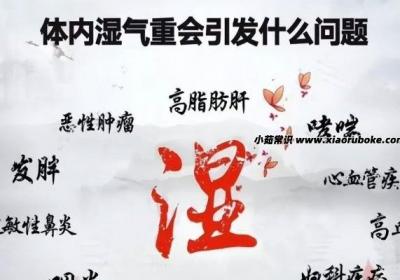 体内湿气重会引发什么问题
高脂肪肝
恶性肿瘤
哮喘
小茹常识 www.xiaoruboke.com
发胖
湿
心血管疾
敏性鼻炎
高